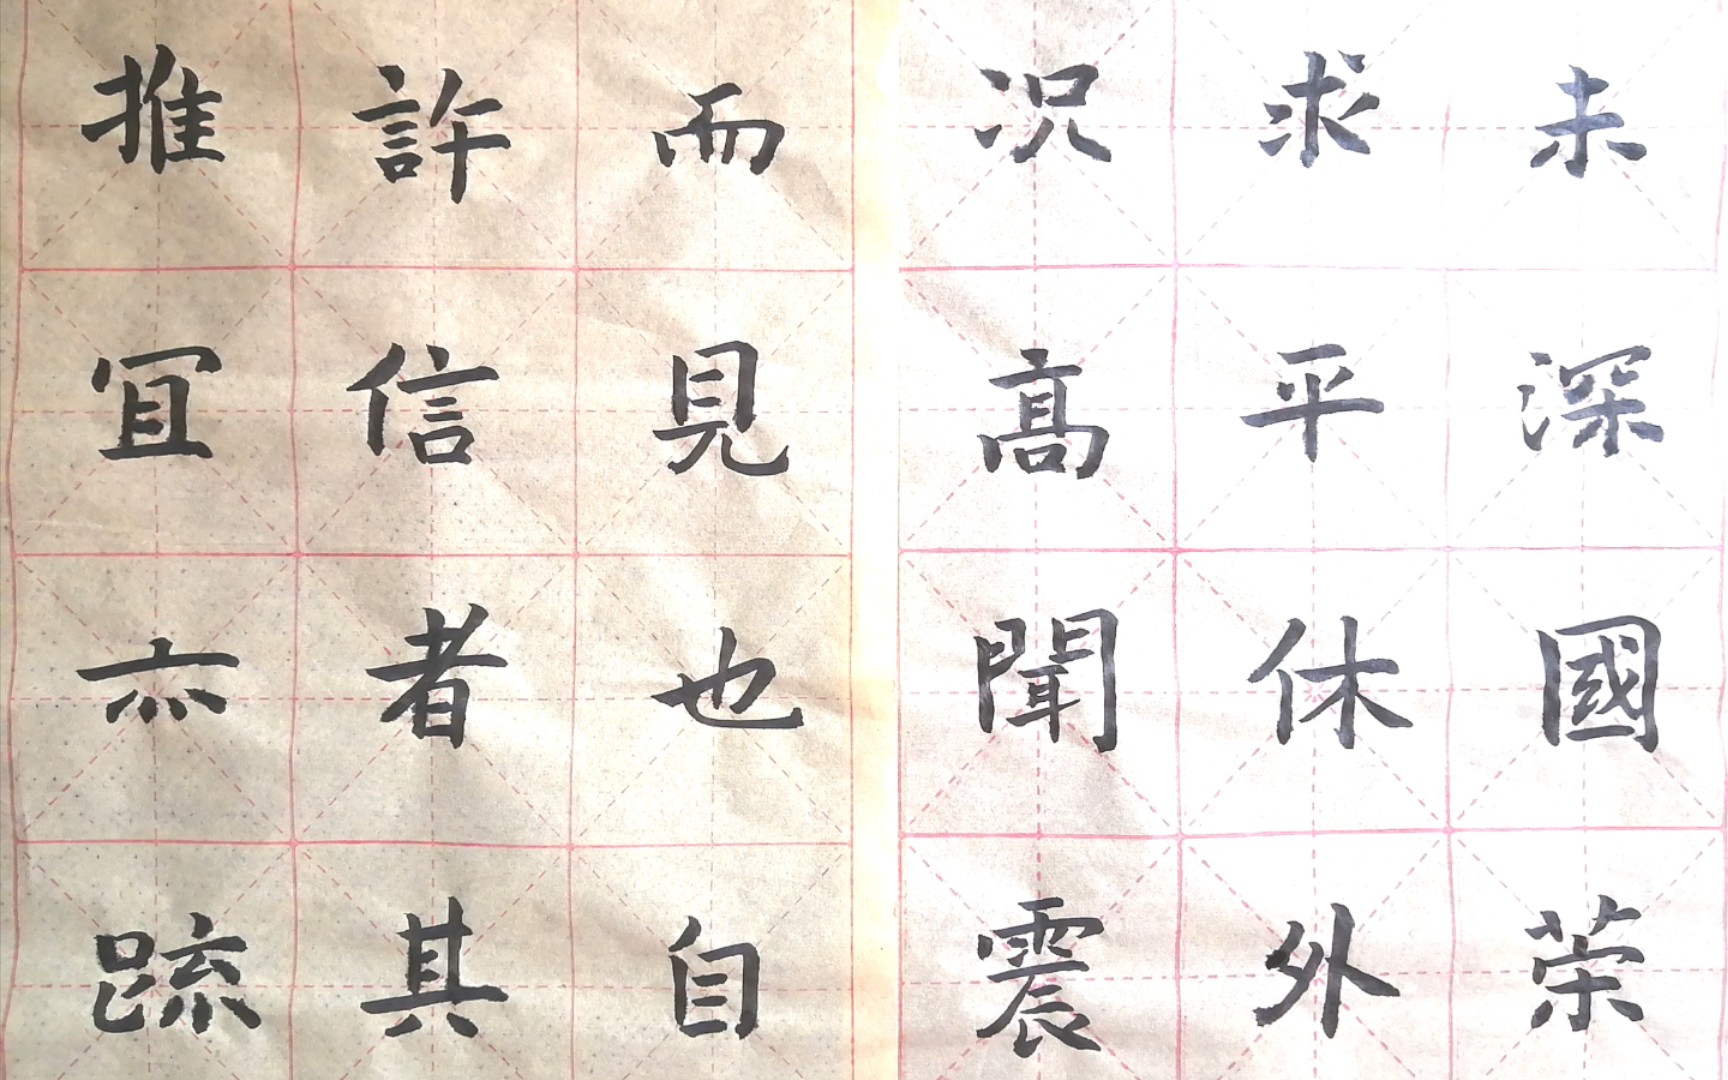 未深國荣
求平休外
况髙聞震
而見也自
許信者其
推冝亦䟽